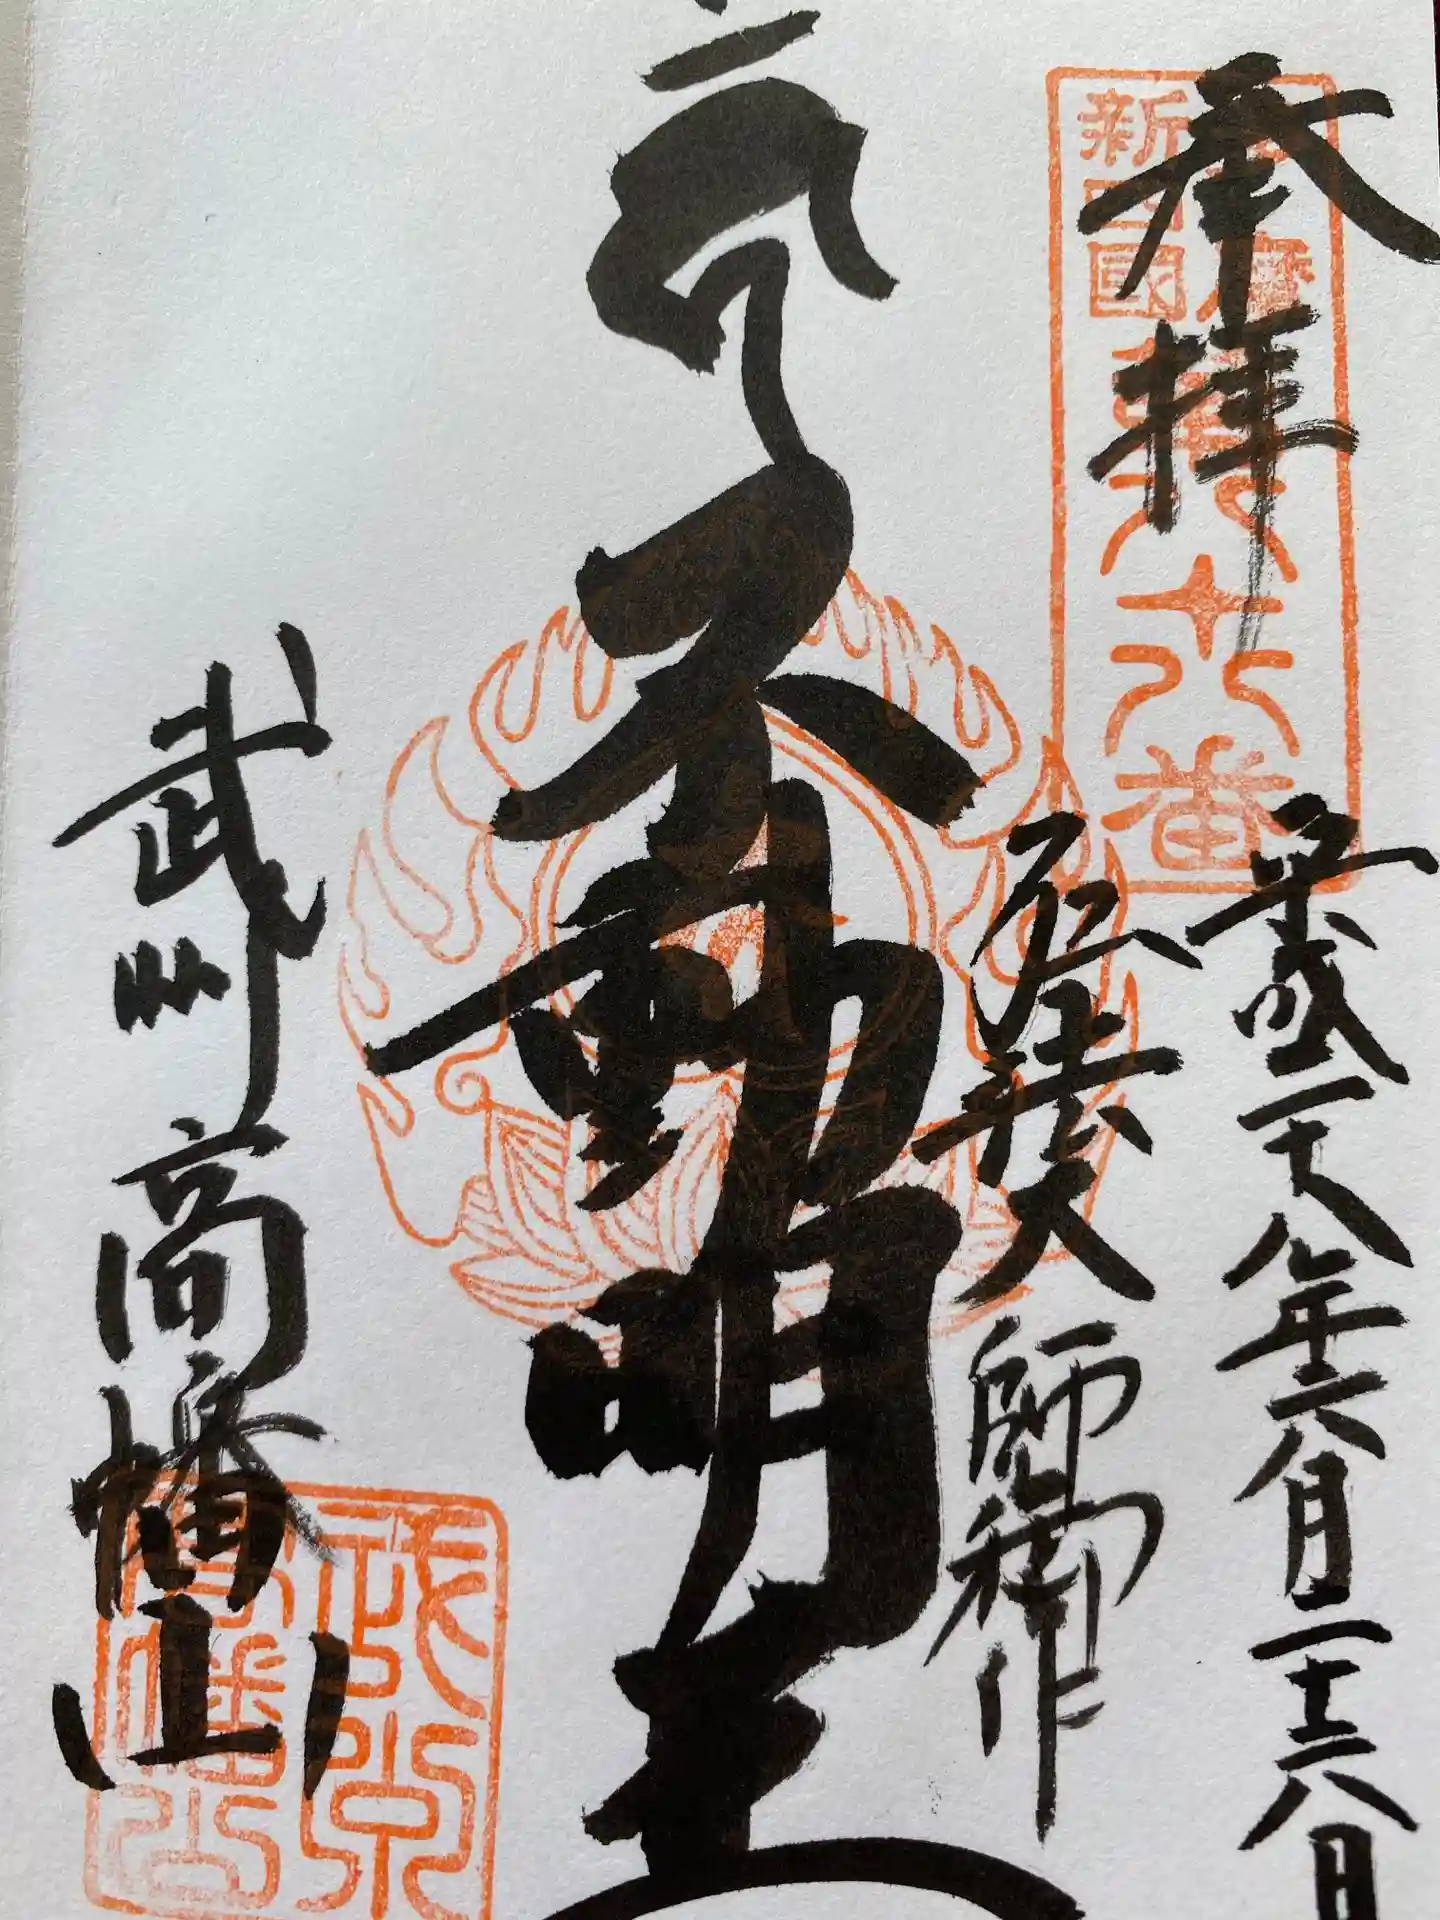 奉拝
平成二十八年六月二十六日
新四國
八十八番
弘法大師御作
不動明王
武州高幡山